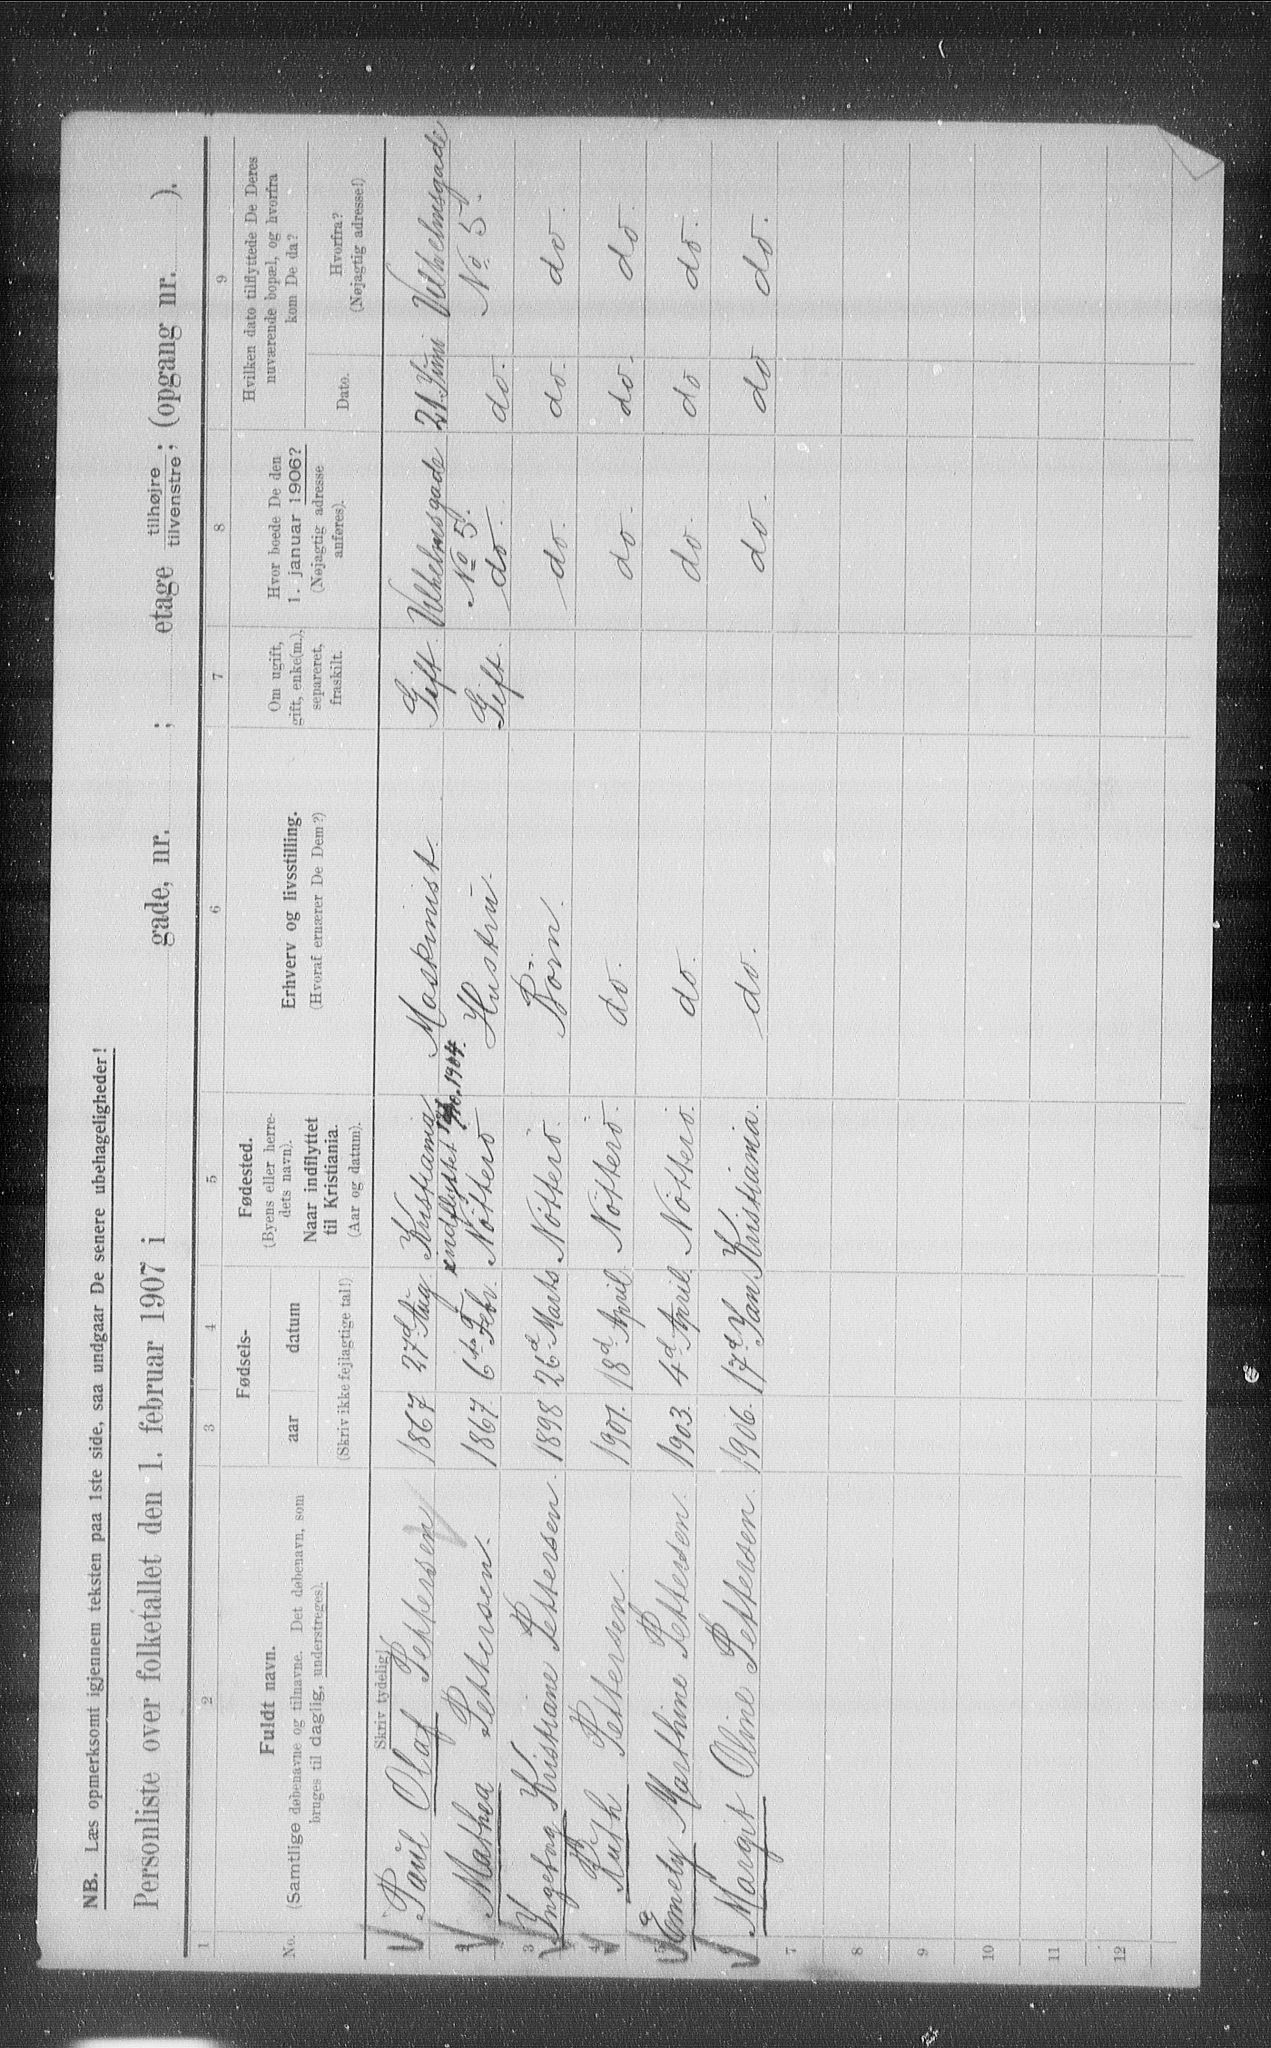 NB. Læs opmerksomt igjennem teksten paa 1ste side, saa undgaar De senere ubehageligheder!
Personliste over folketallet den 1. februar 1907 i gade, nr. ; etage tilhøjre tilvenstre; (opgang nr. ).
1 2 3 4 5 6 7 8 9
No.
Fuldt navn.
(Samtlige døbenavne og tilnavne. Det døbenavn, som
bruges til daglig, understreges).
Skriv tydelig!
Fødsels-
aar datum
(Skriv ikke fejlagtige tal!)
Fødested.
(Byens eller herre-
dets navn).
Naar indflyttet
til Kristiania.
(Aar og datum).
Erhverv og livsstilling.
(Hvoraf ernærer De Dem?)
Om ugift,
gift, enke(m.),
separeret,
fraskilt.
Hvor boede De den
1. januar 1906?
(Nøjagtig adresse
anføres).
Hvilken dato tilflyttede De Deres
nuværende bopæl, og hvorfra
kom De da?
Dato.
Hvorfra?
(Nøjagtig adresse!)
Paul Olaf Pettersen 1867 27d Aug. Kristiania Maskinist. Gift. Vilhelmsgade 21 Juni Vilhelmsgade
indflyttet 1904. No 5. No 5.
2 Mathea Pettersen. 1867. 6te Febr. Nötterö Hustru. Gift. do. do.
3 Yngeborg Kristiane Pettersen. 1898 26d Marts Nötterö. Börn. do. do. do.
4 Ruth Pettersen. 1901. 18d April. Nötterö. do. do. do. do.
5 Emely Marthine Pettersen. 1903. 4d April. Nötterö. do. do. do do.
Margit Oline Pettersen. 1906. 17d Jan Kristiania. do. do. do do.
7
8
9
10
11
12